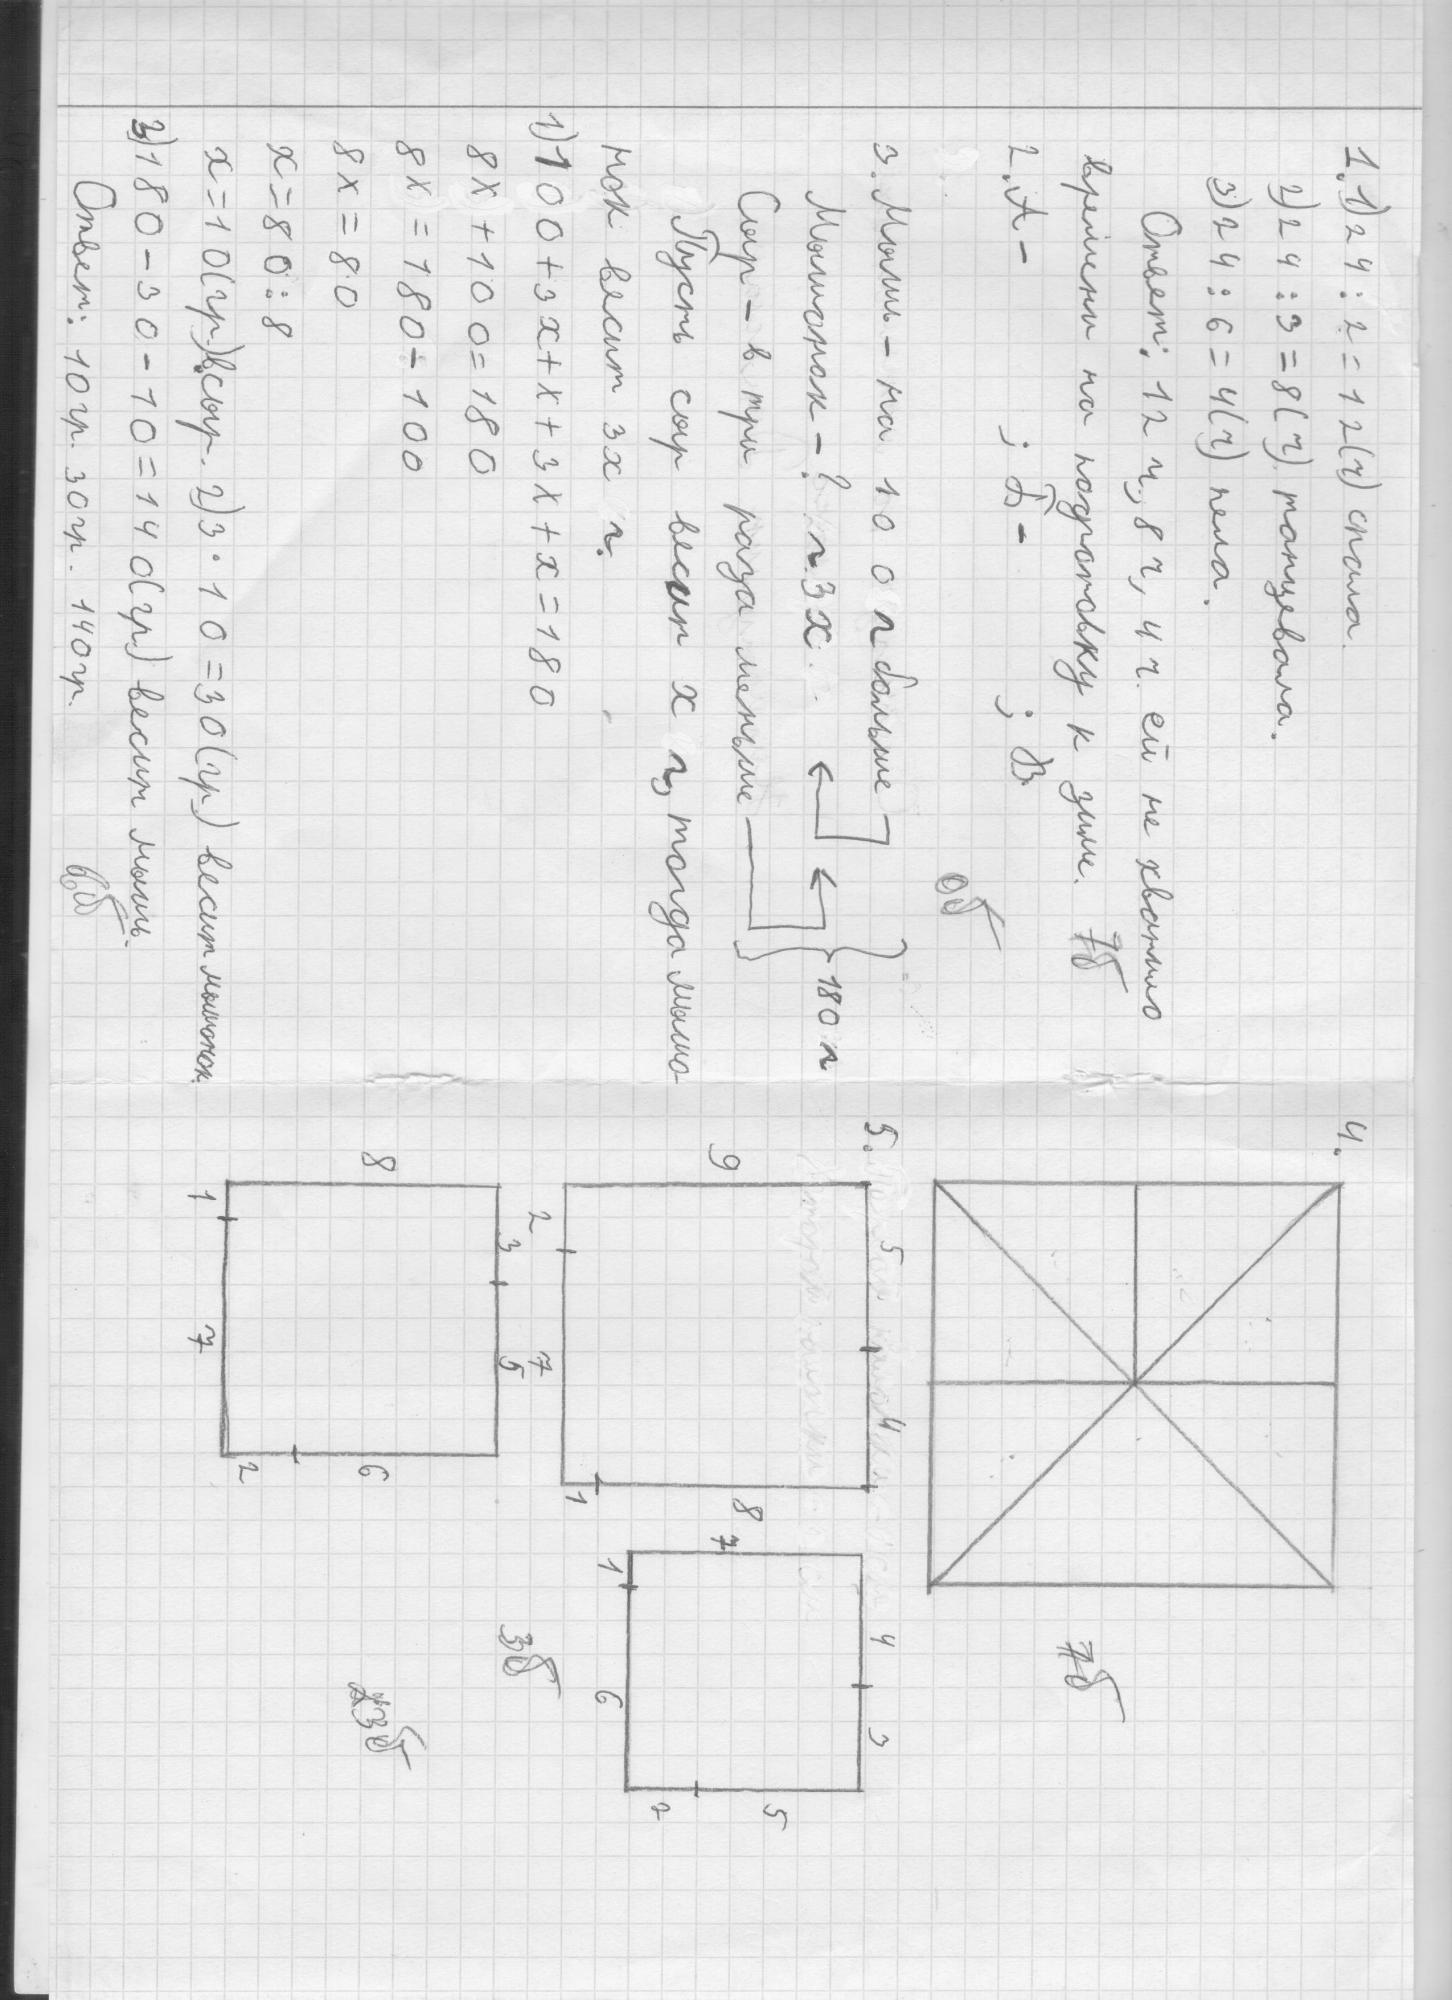 1. 1) 24 : 2 = 12 (ч) спала.
2) 24 : 3 = 8 (ч) танцевала.
3) 24 : 6 = 4 (ч) пела.
Ответ: 12 ч, 8 ч, 4 ч. ей не хватило
времени на подготовку к зиме. 7б
2. А – ; Б – ; В
0б
3. Мышь – на 100 г больше
Мышонок – ? г. 3х
Сыр – в три раза меньше
180 г
Пусть сыр весит х г, тогда мышо-
нок весит 3х г.
1) 100 + 3х + х + 3х + х = 180
8х + 100 = 180
8х = 180 – 100
8х = 80
х = 80 : 8
х = 10 (гр.) в.сыр. 2) 3 · 10 = 30 (гр) весит мышонок
3) 180 – 30 – 10 = 140 (гр) весит мышь.
Ответ: 10 гр. 30 гр. 140 гр.
6б
4.
7б
5. 5 4
9
8
2 7 1
4 3
7
5
1 6 2
3 5
8
6
1 7 2
3б
23б